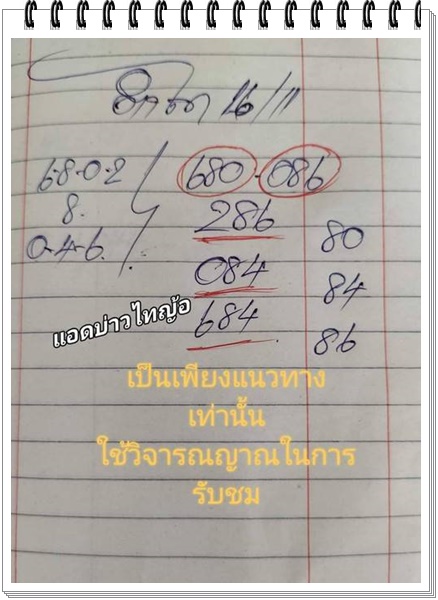 16/11
6-8-0-2
680-086
8.
286
80
0-4-6.
084
84
684
86
แอดบ่าวไทญ้อ
เป็นเพียงแนวทาง
เท่านั้น
ใช้วิจารณญาณในการ
รับชม